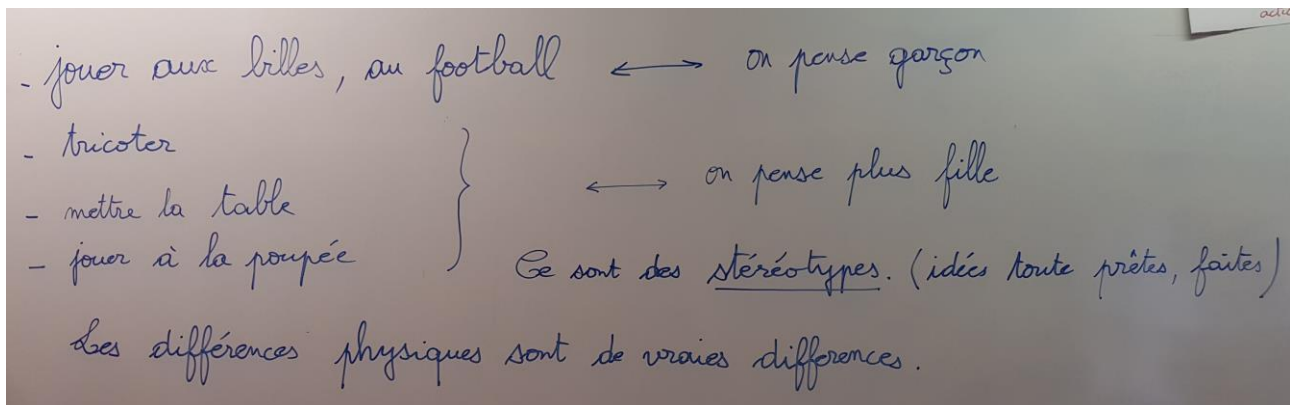 - jouer aux billes, au football ⟷ on pense garçon
- tricoter
⟷ on pense plus fille
- mettre la table
- jouer à la poupée
Ce sont des stéréotypes. (idées toute prêtes, faites)
Les différences physiques sont de vraies differences.